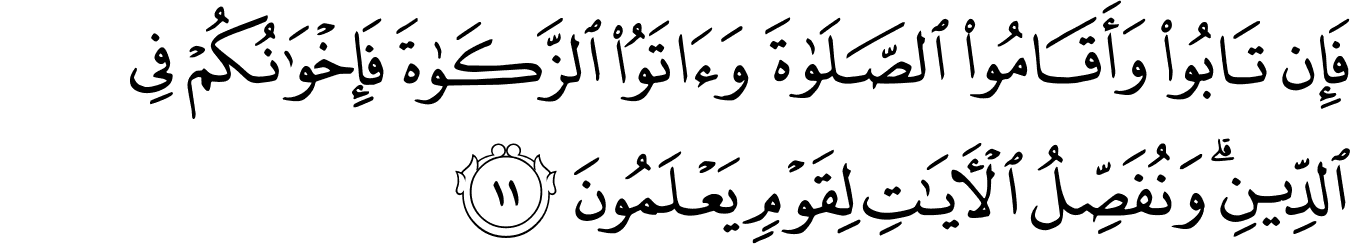 فَإِن تَابُوا۟ وَأَقَامُوا۟ ٱلصَّلَوٰةَ وَءَاتَوُا۟ ٱلزَّكَوٰةَ فَإِخْوَٰنُكُمْ فِى
ٱلدِّينِ ۗ وَنُفَصِّلُ ٱلْـَٔايَـٰتِ لِقَوْمٍ يَعْلَمُونَ ١١